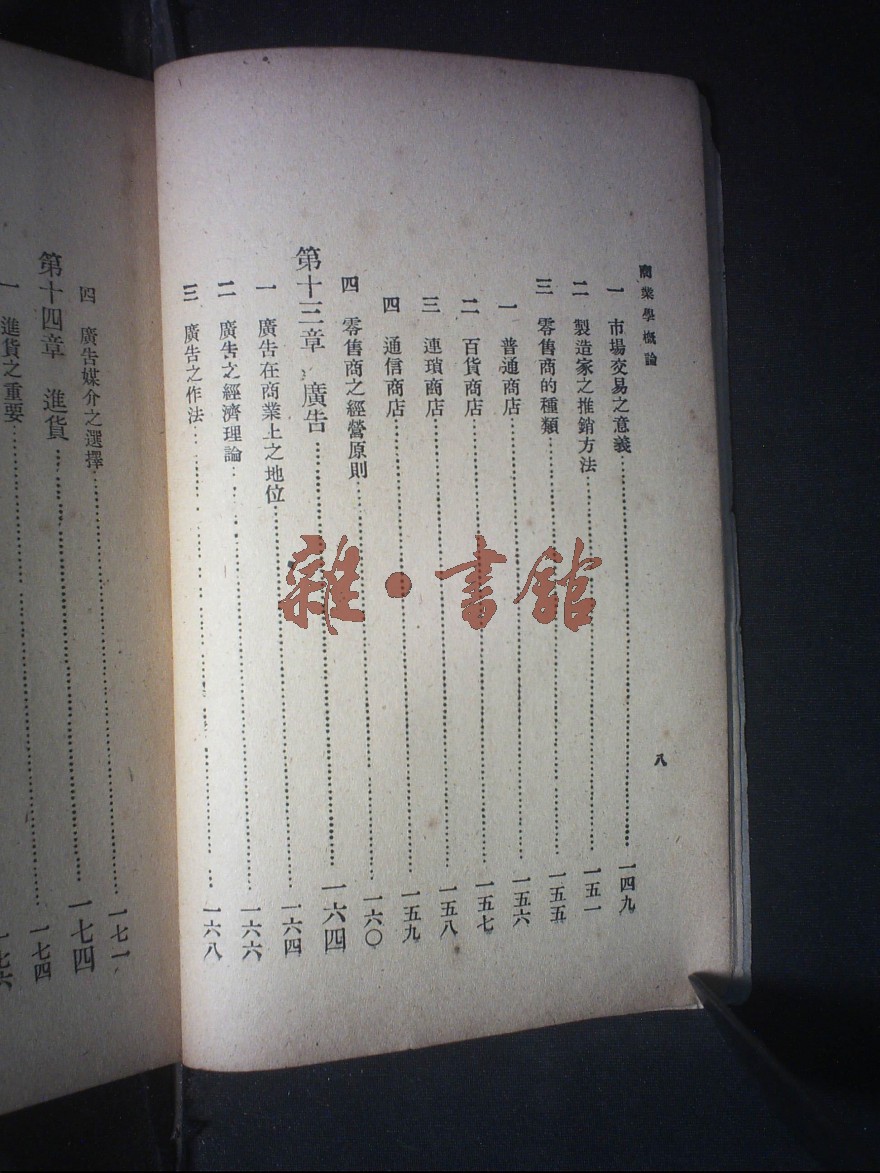 商業學概論
八
一 市場交易之意義……一四九
二 製造家之推銷方法……一五一
三 零售商的種類……一五五
一 普通商店……一五六
二 百貨商店……一五七
三 連瑣商店……一五八
四 通信商店……一五九
四 零售商之經營原則……一六〇
第十三章 廣告……一六四
一 廣告在商業上之地位……一六四
二 廣告之經濟理論……一六六
三 廣告之作法……一六八
四 廣告媒介之選擇……一七一
第十四章 進貨……一七四
一 進貨之重要……一七四
一七六
雜·書館